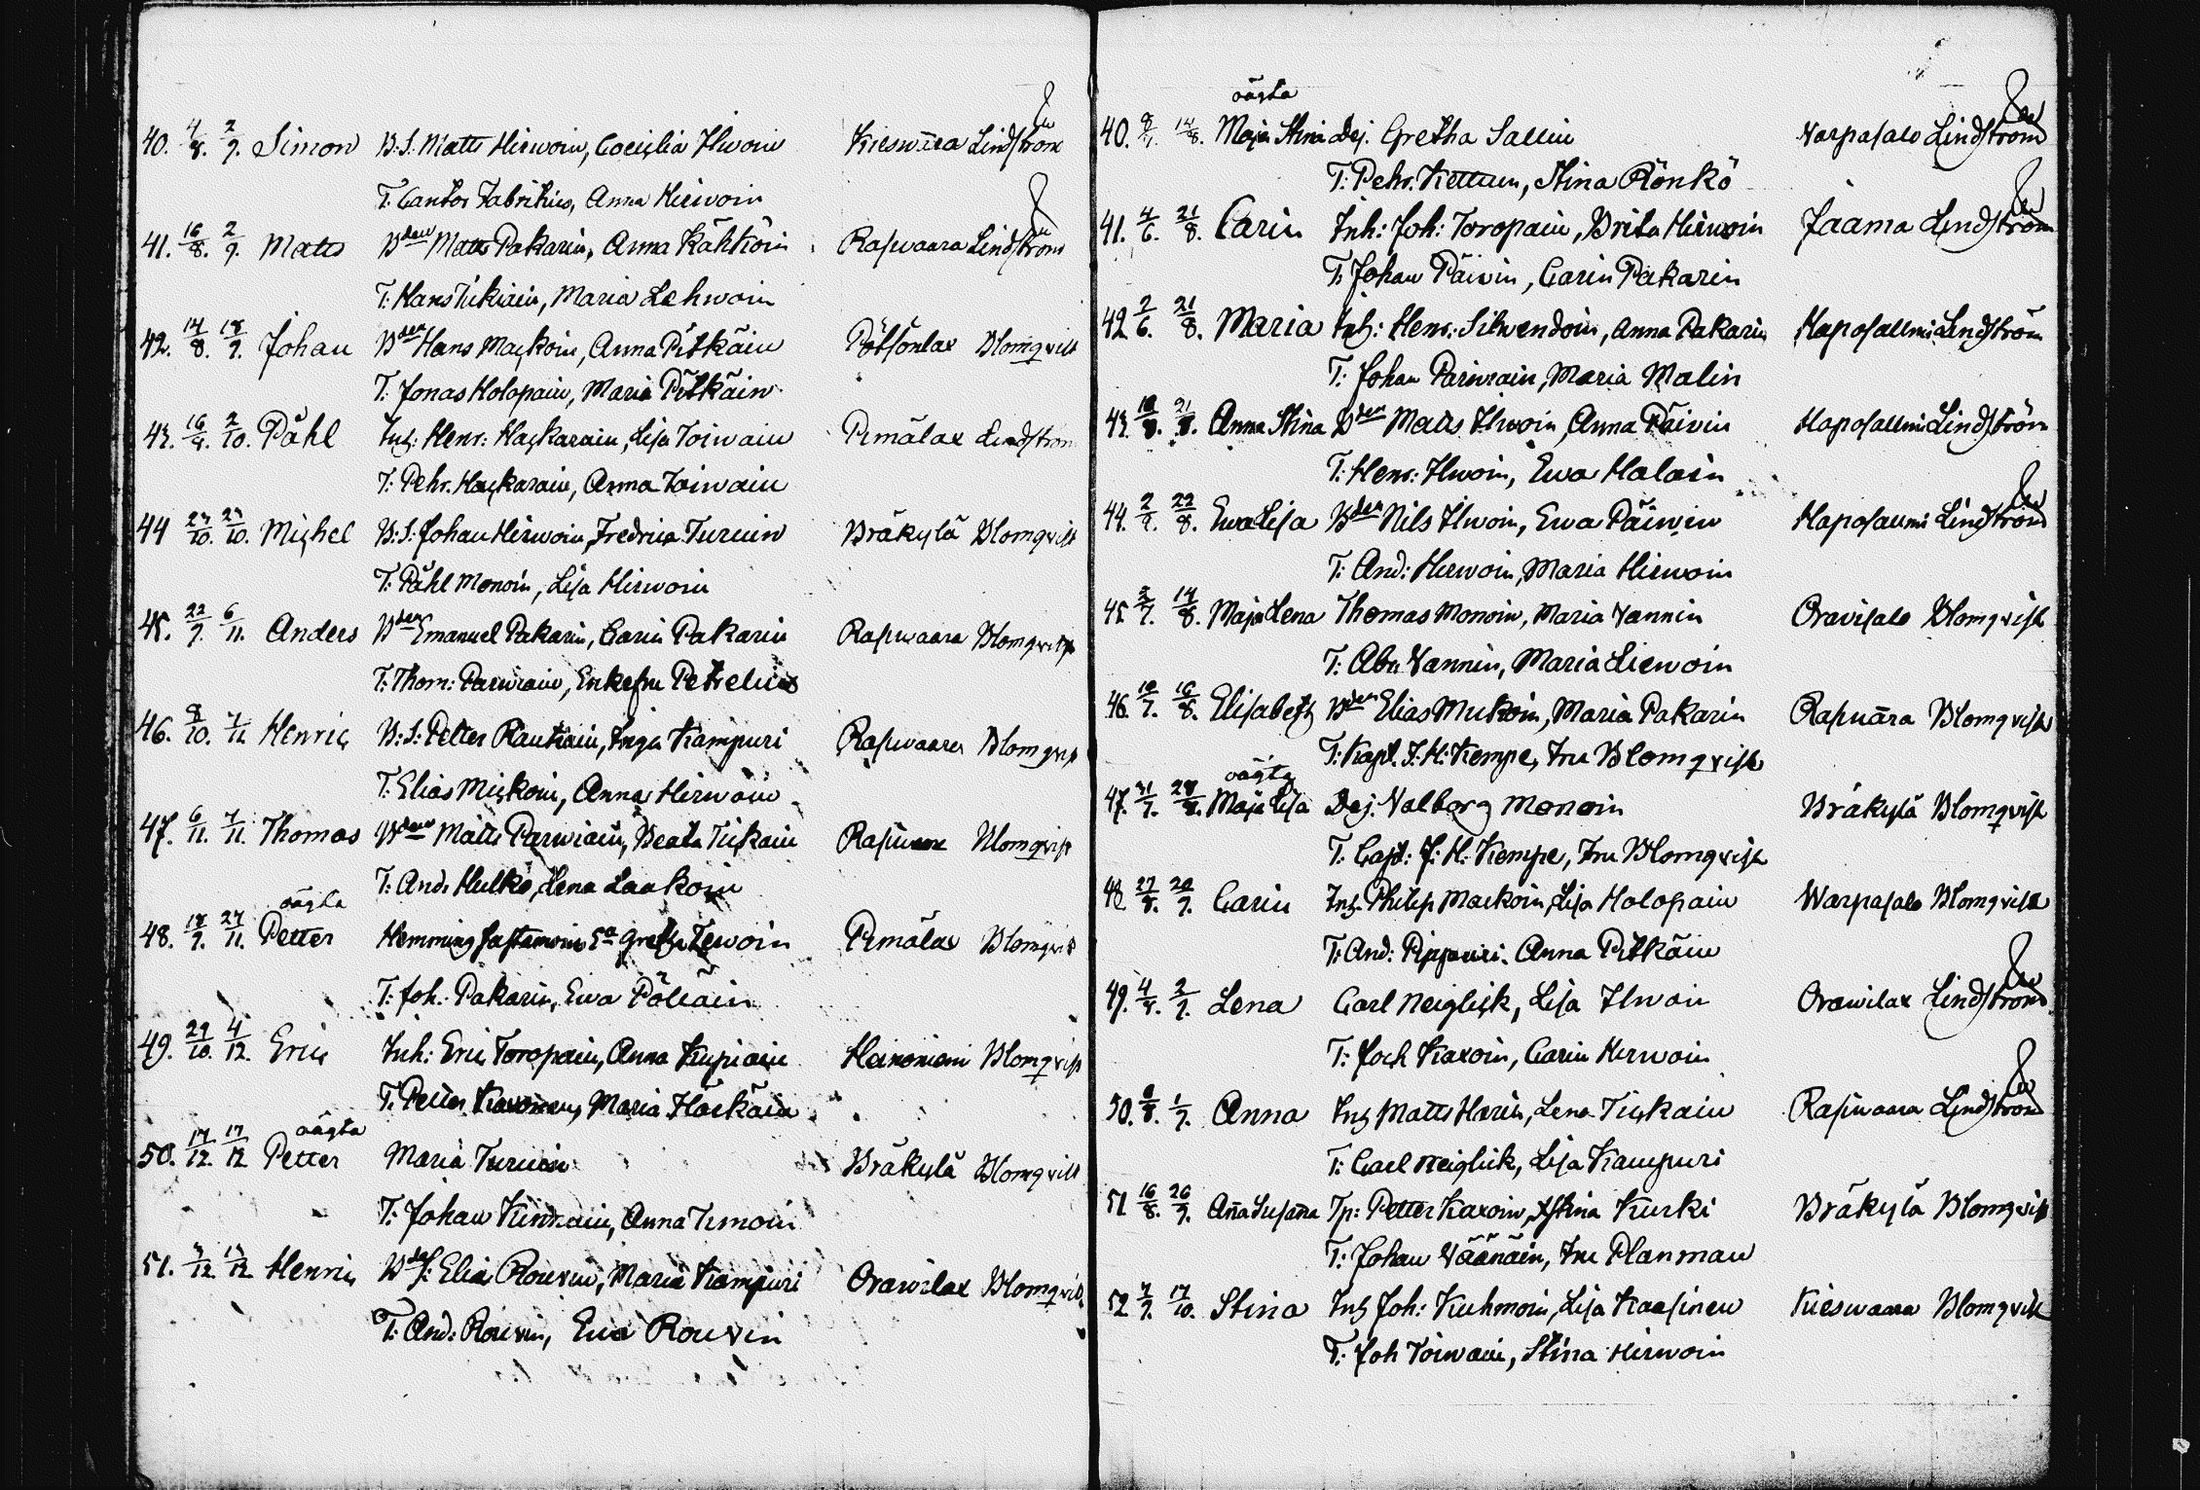 40. 4/8. 2/9. Simon B.S. Matts Hirwoin, Coeciglia Ihwoin Kieswara Lindström
T. Cantor Fabritius, Anna Hirwoin
41. 16/8. 2/9. Matts Bden Matts Pakarin, Anna Kähköin Raswaara Lindström
T: Hans Tickain, Maria Lehwoin
42. 14/8. 18/9. Johan Bden Hans Mackoin, Anna Pitkäin Pötsönlax Blomqvist
T. Jonas Holopain, Maria Pitkäin
43. 16/9. 2/10. Påhl Inh: Henr: Hackarain, Lisa Toiwain Pimälax Lindström
T. Pehr. Hackarain, Anna Toiwain
44 10. 10. Michel B:S: Johan Hirwoin, Fredrica Turuin Bräkylä Blomqvist
T: Påhl Monoin, Lisa Hirwoin
45. 22/9. 6/11. Anders Bden Emanuel Pakarin, Carin Pakarin Raswaara Blomqvist
T: Thom: Parwiain, Enkefru Petrelius
46. 8/10. 7/11 Henric B:S: Petter Rautiain, Inga Kampuri Raswaara Blomqvist
T. Elias Mickoin, Anna Hirwoin
47. 6/11. 7/11 Thomas Bden Matts Parwiain, Beata Tickain Blomqvist
T: And. Hulko, Lena Laakoin
oägta
48. 18/9. 27/11. Petter Hemming Sa Greta Pimälax Blomqvist
T: Joh: Pakarin, Ewa Pöllöin
49. 29/10. 4/12. Eric Inh: Eric Toropain, Anna Kupiain Heinoniemi Blomqvist
T. Petter Maria
oägta
50. 17/12. 17/12 Petter Maria Turuin Bräkylä Blomqvist
T: Johan Anna Timoin
51. 12. 12 Henric Elias Rouvin, Maria Kampuri Orawilax Blomqvist
T: And: Rouvin, Ewa Rouvin
oägta
40. 14/8. Maja Stina Dej. Gretha Sallin Varpasalo Lindström
T: Pehr. Kettuin, Stina Rönkö
41. 4/6. 21/8. Carin Inh: Joh: Toropain, Brita Hirwoin Jaama Lindström
T: Johan Päivin, Carin Pakarin
42 2/6. 21/8. Maria Inh: Henr: Silwendoin, Anna Pakarin Haposallmi Lindström
T: Johan Parwiain, Maria Malin
43. 21/8. Anna Stina Bden Matts Ihwoin, Anna Päivin Haposallmi Lindström
T: Henr: Ihwoin, Ewa Halain
44. 22/8. Ewa Lisa Bden Nils Ihwoin, Ewa Päiwin Haposallmi Lindström
T: And: Hirwoin, Maria Hirwoin
45 14/8. Maja Lena Thomas Monoin, Maria Vannin Oravisalo Blomqvist
T: Abr. Vannin, Maria Liewoin
46. 10/7. 16/8. Elisabeth Bden Elias Mukoin, Maria Pakarin Rasuära Blomqvist
T: Kapt. J: H: Kempe, Fru Blomqvist
oägta
47. 31/7. 28/8. Maja Lisa Dej. Valborg Monoin Bräkylä Blomqvist
T: Capt: J: H: Kempe, Fru Blomqvist
48 27/8. 20/9. Carin Inh. Philip Mackoin, Lisa Holopain Warpasalo Blomqvist
T: And: Pippuri. Anna Pitkäin
49. 4/8. 2/9. Lena Carl Neiglick, Lisa Ihwoin Orawilax Lindström
T: Joch Karoin, Carin Hirwoin
50. 8/8. 1/9. Anna Inh Matts Harin, Lena Tickain Raswaara Lindström
T: Carl Neiglick, Lisa Kampuri
51 16/8. 26/9. Aña Susaña Tp: Petter Karoin, Stina Kurki Bräkylä Blomqvist
T: Johan Väänäin, Fru Planman
52 7/9. 17/10. Stina Inh Joh: Kuhmoin, Lisa Kaasinen Kieswaara Blomqvist
T: Joh Toiwain, Stina Hirwoin